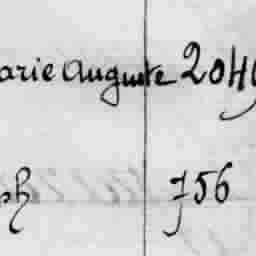 arie Auguste 2049
ph 756